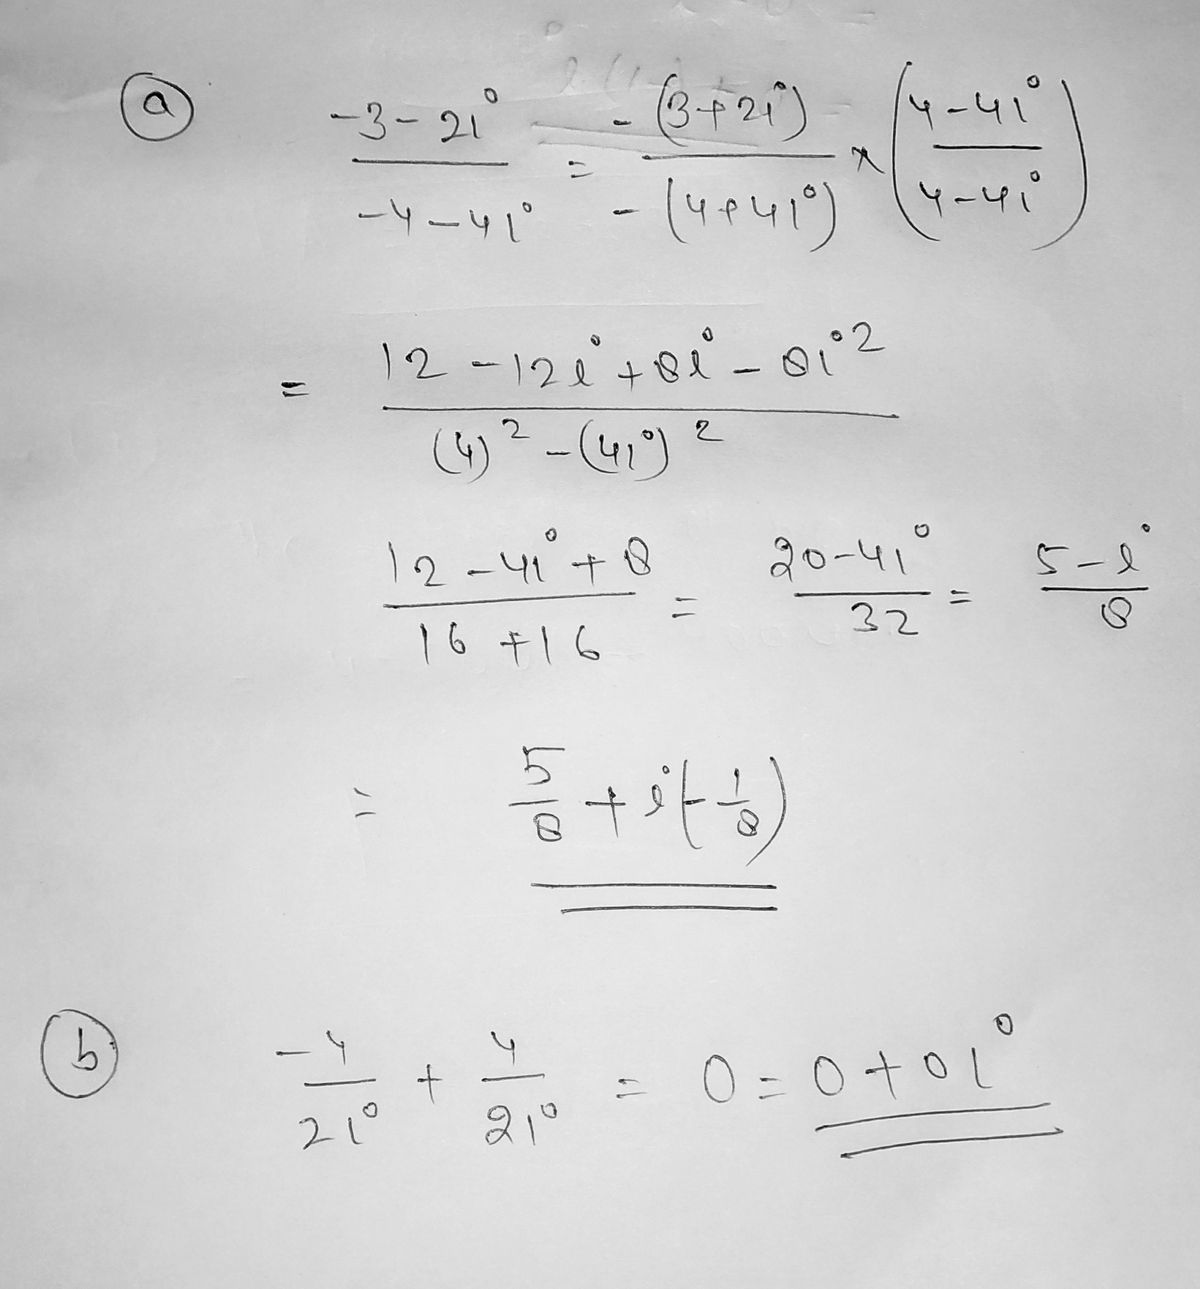 (a) (-3-2i)/(-4-4i) = (-(3+2i))/(-(4+4i)) × ((4-4i)/(4-4i))
= (12-12i+8i-8i²)/((4)²-(4i)²)
(12-4i+8)/(16+16) = (20-4i)/32 = (5-i)/8
= 5/8 + i(-1/8)
(b) -4/2i + 4/2i = 0 = 0+0i